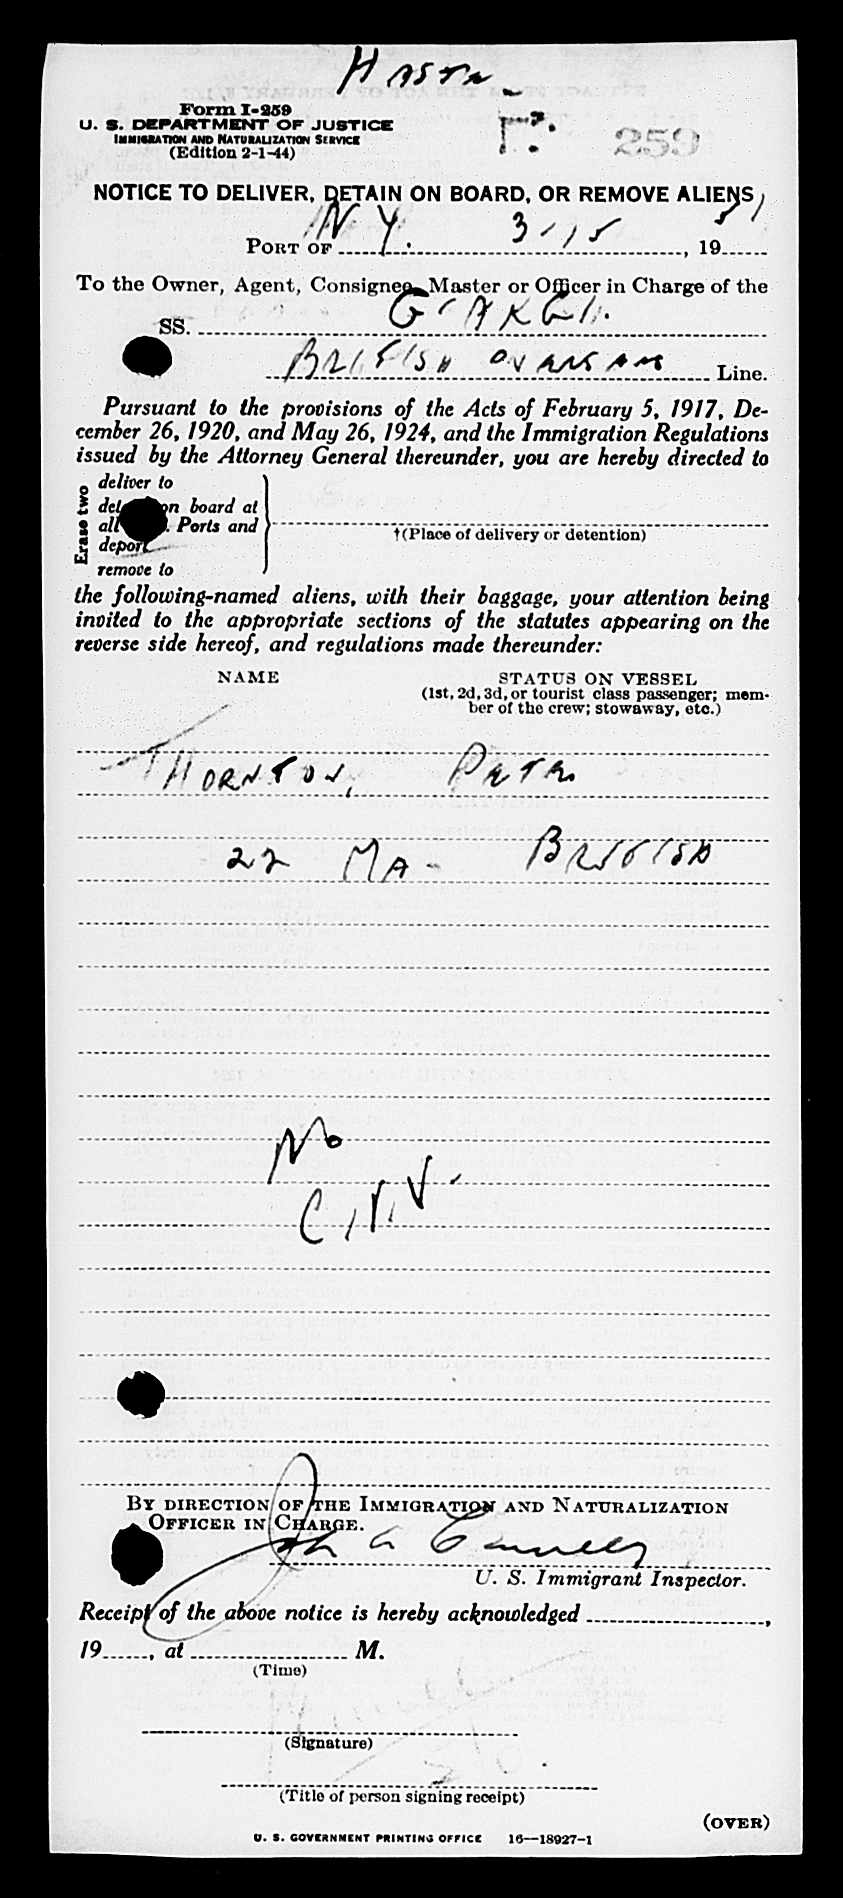 Form I-259
U. S. DEPARTMENT OF JUSTICE
IMMIGRATION AND NATURALIZATION SERVICE
(Edition 2-1-44)
259
NOTICE TO DELIVER, DETAIN ON BOARD, OR REMOVE ALIENS
PORT OF N Y. 3-15, 1951
To the Owner, Agent, Consignee, Master or Officer in Charge of the
SS.
BRITISH OVERSEAS Line.
Pursuant to the provisions of the Acts of February 5, 1917, De-
cember 26, 1920, and May 26, 1924, and the Immigration Regulations
issued by the Attorney General thereunder, you are hereby directed to
Erase two
deliver to
on board at
all Ports and
deport
remove to
†(Place of delivery or detention)
the following-named aliens, with their baggage, your attention being
invited to the appropriate sections of the statutes appearing on the
reverse side hereof, and regulations made thereunder:
NAME STATUS ON VESSEL
(1st, 2d, 3d, or tourist class passenger; mem-
ber of the crew; stowaway, etc.)
THORNTON, PETER
22 MA- BRITISH
No
C.I.V.
BY DIRECTION OF THE IMMIGRATION AND NATURALIZATION
OFFICER IN CHARGE.
U. S. Immigrant Inspector.
Receipt of the above notice is hereby acknowledged ,
19 , at M.
(Time)
(Signature)
(Title of person signing receipt)
(OVER)
U. S. GOVERNMENT PRINTING OFFICE 16—18927-1